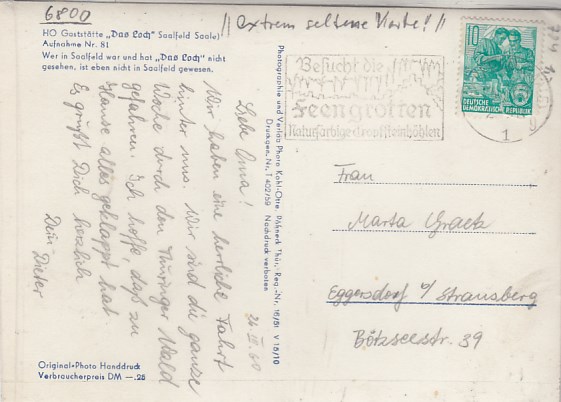 6800
// extrem seltene Karte! //
HO Gaststätte „Das Loch" Saalfeld Saale)
Aufnahme Nr. 81
Wer in Saalfeld war und hat „Das Loch" nicht
gesehen, ist eben nicht in Saalfeld gewesen.
26 60
Liebe Oma!
Wir haben eine herrliche Fahrt
hinter uns. Wir sind die ganze
Woche durch den Thüringer Wald
gefahren. Ich hoffe, daß zu
Hause alles geklappt hat
Es grüßt Dich herzlich
Dein Dieter
Original-Photo Handdruck
Verbraucherpreis DM —.25
Photographie und Verlag Photo König-Otte, Pößneck Thür., Reg.-Nr. 16/81 V 16/10
Druckgen.-Nr. T 402/59 Nachdruck verboten
Besucht die
Feengrotten
Naturfarbige Tropfsteinhöhlen
10
DEUTSCHE
DEMOKRATISCHE REPUBLIK
1
Frau
Marta
Eggersdorf b/ Strausberg
Bötzseestr. 39